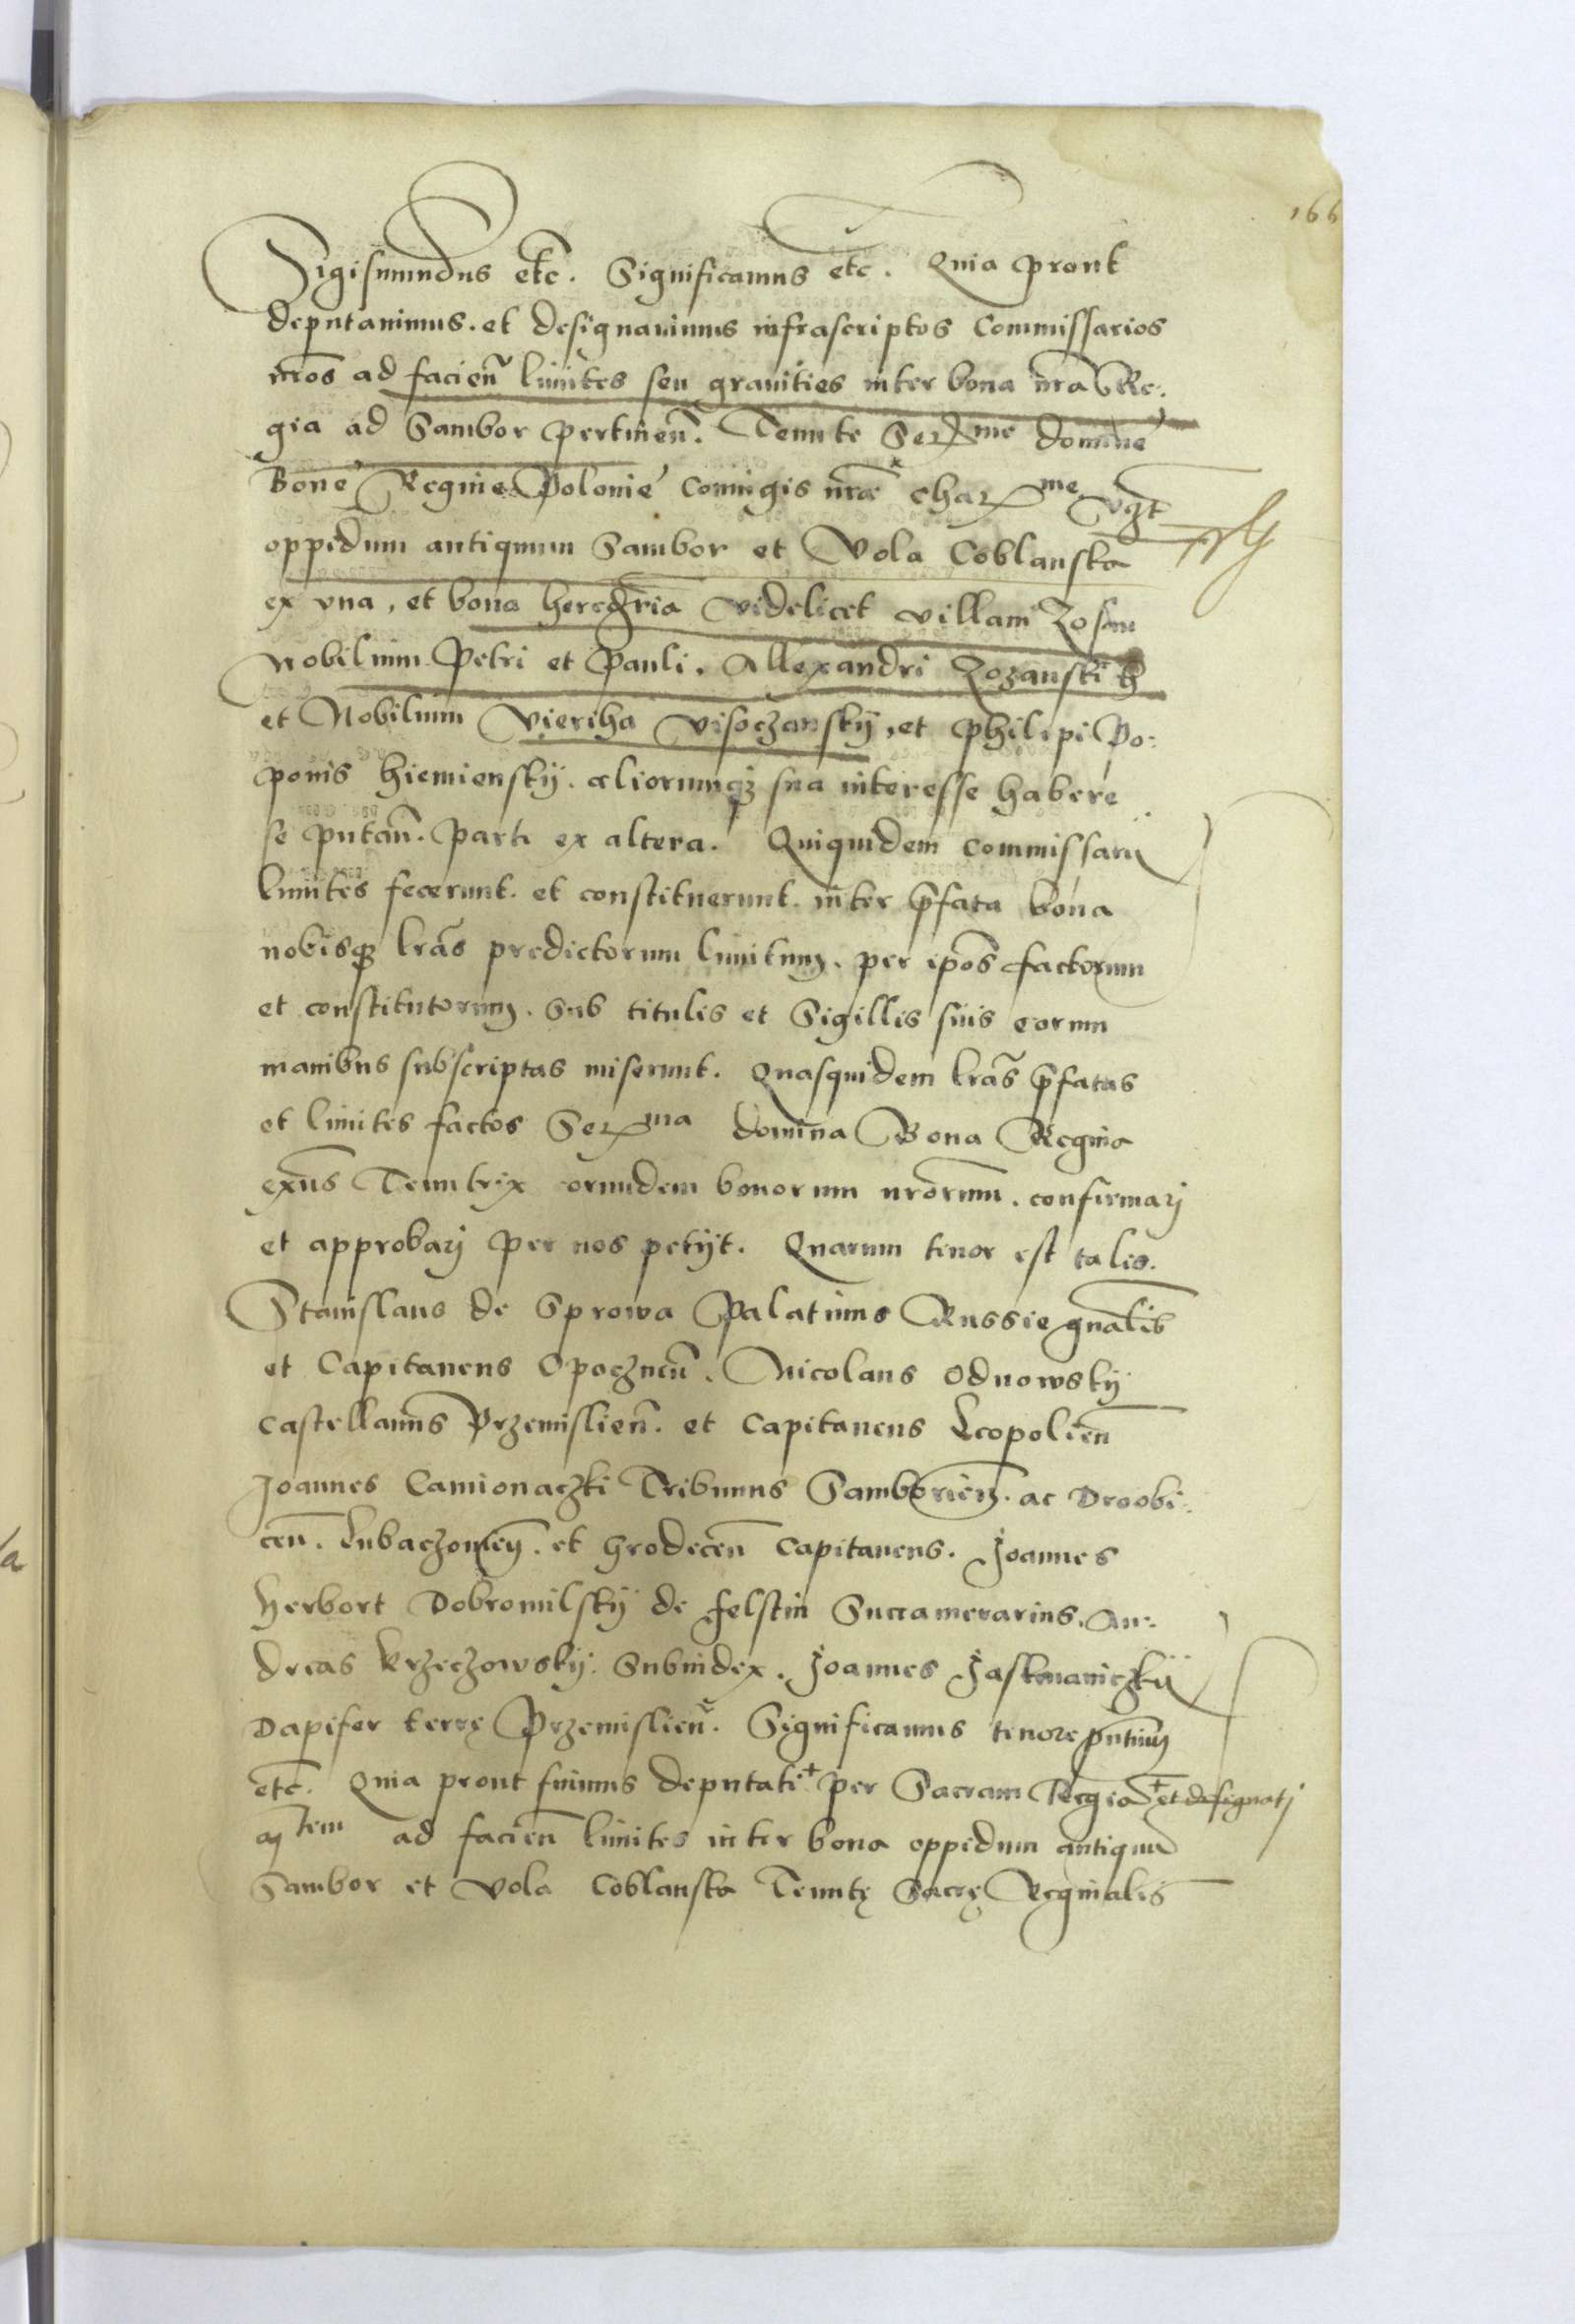 166
Sigismundus etc. Significamus etc. Quia prout
deputavimus. et designavimus infrascriptos Commissarios
nros ad facien limites seu granities inter bona nra Re-
gia ad Sambor pertinen. Tenute Ser me domine
Bone Regine Polonie Coniugis nrae char me vgt
oppidum antiquum Sambor et Vola Coblanska
ex vna, et bona hereditria videlicet villam Zosan
Nobilium Petri et Pauli. Allexandri Zozanskich
et Nobilium Vieriha Visoczanskij, et Philipi Po-
ponis Hiemienskij. aliorumq sua interesse habere
se putan. Parti ex altera. Quiquidem Commissarij
limites fecerunt. et constituerunt. inter pfata bona
nobisq lras predictorum limitum. per ipos factorum
et constitutorum. Sub titulis et Sigillis suis eorum
manibus subscriptas miserunt. Quasquidem lras pfatas
et limites factos Ser ma domina Bona Regina
exns Tenutrix eorundem bonorum nrorum. confirmarj
et approbarj per nos petijt. Quarum tenor est talis.
Stanislaus de Sprowa Palatinus Russie gnalis
et Capitaneus Opocznen. Nicolaus Odnowskij
Castellanus Przemislien. et Capitaneus Leopolien
Joannes Camionaczki Tribunus Samborien. ac Droobi-
cen. Lubaczovien. et Grodecen Capitaneus. Joannes
Herbort Dobromilskij de Felstin Succamerarius. An-
dreas Krzeczowskij. Subiudex. Joannes Jaskmaniczkij
Dapifer terrę Przemislien. Significamus tenore pntium
etc. Quia prout fuimus deputati + per Sacram Regia + et designatj
M tem ad facien limites inter bona oppidum antiquu
Sambor et Vola Coblanska Tenutę Sacrę Reginalis